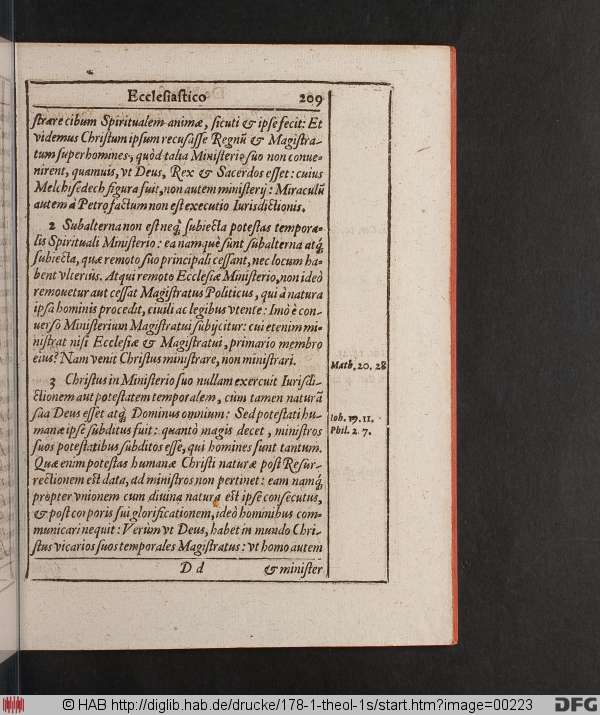 Ecclesiastico 209
strare cibum Spiritualem animæ, sicuti & ipse fecit: Et
videmus Christum ipsum recusasse Regnũ & Magistra-
tum super homines, quòd talia Ministerio suo non conue-
nirent, quamuis, vt Deus, Rex & Sacerdos esset: cuius
Melchisedech figura fuit, non autem ministerij: Miraculũ
autem à Petro factum non est executio Iurisdictionis.
2 Subalterna non est neq; subiecta potestas tempora-
lis Spirituali Ministerio: ea namquè sunt subalterna atq;
subiecta, quæ remoto suo principali cessant, nec locum ha-
bent vlteriùs. Atqui remoto Ecclesiæ Ministerio, non ideò
remouetur aut cessat Magistratus Politicus, qui à natura
ipsa hominis procedit, ciuili ac legibus vtente: Imò è con-
uerso Ministerium Magistratui subijcitur: cui etenim mi-
nistrat nisi Ecclesiæ & Magistratui, primario membro
eius? Nam venit Christus ministrare, non ministrari.
Math. 20. 28
3 Christus in Ministerio suo nullam exercuit Iurisdi-
ctionem aut potestatem temporalem, cùm tamen naturâ
sua Deus esset atq; Dominus omnium: Sed potestati hu-
manæ ipse subditus fuit: quantò magis decet, ministros
suos potestatibus subditos esse, qui homines sunt tantum.
Ioh. 19. 11.
Phil. 2 7.
Quæ enim potestas humanæ Christi naturæ post Resur-
rectionem est data, ad ministros non pertinet: eam namq;
propter vnionem cum diuina natura est ipse consecutus,
& post corporis sui glorificationem, ideò hominibus com-
municari nequit: Verùm vt Deus, habet in mundo Chri-
stus vicarios suos temporales Magistratus: vt homo autem
D d & minister
© HAB http://diglib.hab.de/drucke/178-1-theol-1s/start.htm?image=00223
DFG